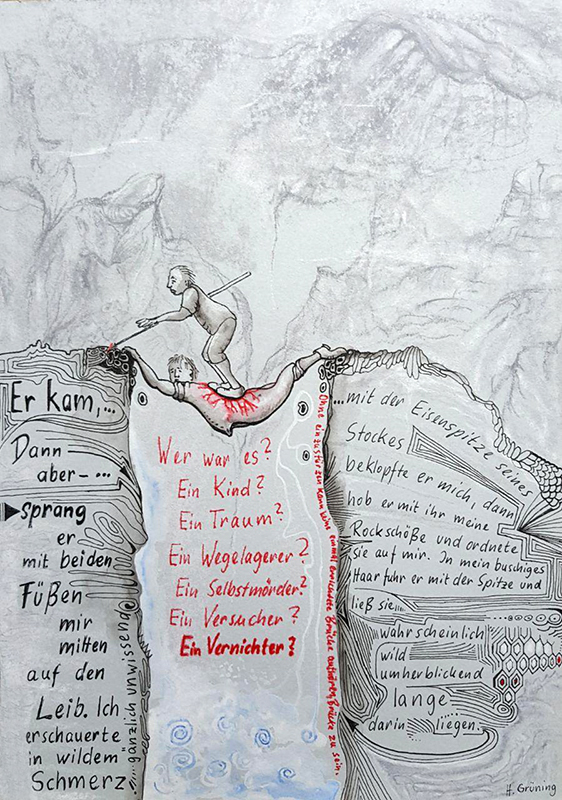 Er kam,...
Dann
aber–...
sprang
er
mit beiden
Füßen
mir
mitten
auf den
Leib. Ich
erschauerte
in wildem
Schmerz
gänzlich unwissend
...mit der Eisenspitze seines
Stockes
beklopfte er mich, dann
hob er mit ihr meine
Rockschöße und ordnete
sie auf mir. In mein buschiges
Haar fuhr er mit der Spitze und
ließ sie...
wahrscheinlich
wild
umherblickend
lange
darin liegen.
Wer war es?
Ein Kind?
Ein Traum?
Ein Wegelagerer?
Ein Selbstmörder?
Ein Versucher?
Ein Vernichter?
Ohne einzustürzen kann keine einmal errichtete Brücke aufhören, Brücke zu sein.
H. Grüning